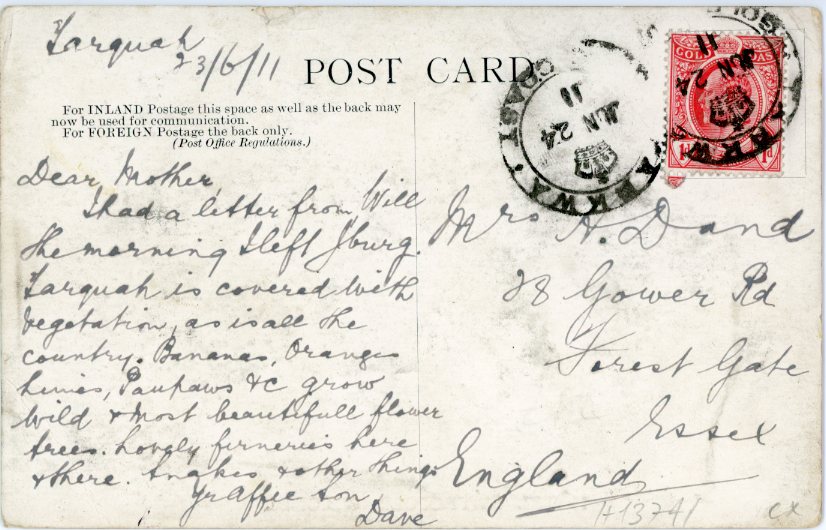 Tarquah
23/6/11
POST CARD
For INLAND Postage this space as well as the back may
now be used for communication.
For FOREIGN Postage the back only.
(Post Office Regulations.)
Dear Mother,
I had a letter from Will
the morning I left Jburg.
Tarquah is covered with
vegetation, as is all the
country. Bananas, Oranges
Limes, Paupaws &c grow
wild & most beautifull flower
trees. Lovely ferneries here
& there. Snakes & other things
Yr Affec son
Dave
Mrs A. Dand
28 Gower Rd
Forest Gate
Essex
England
GOLD COAST
JUN 24
11
COAST
JUN 24
11
1d
H13741
cx